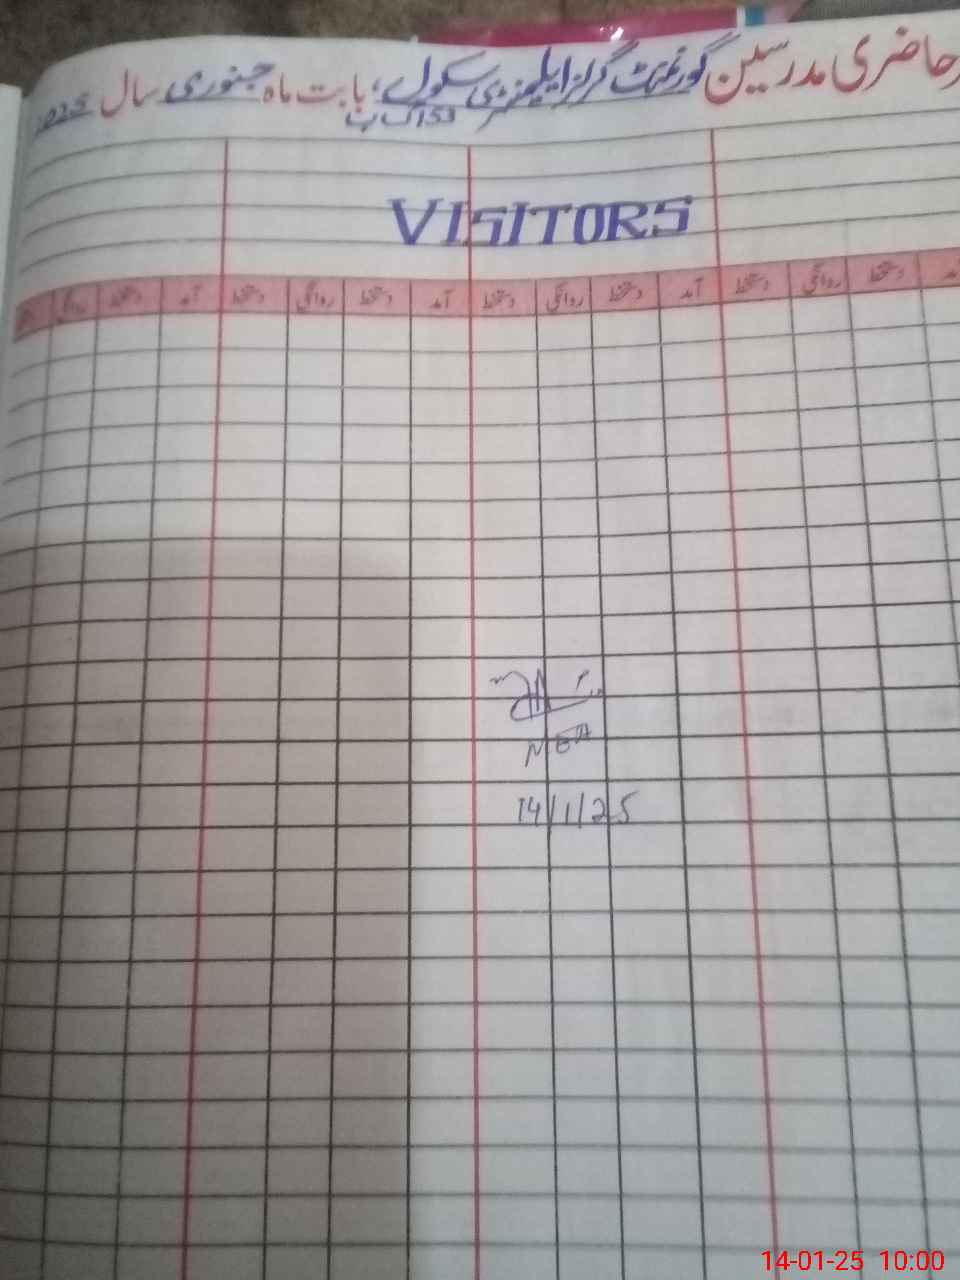 حاضری مدرسین گورنمنٹ گرلز ایلیمنٹری سکول، بابت ماہ جنوری سال 2025
153 گ ب
VISITORS
آمد دستخط روانگی دستخط آمد دستخط روانگی دستخط آمد دستخط روانگی دستخط آمد دستخط روانگی
MEA
14/1/25
14-01-25 10:00